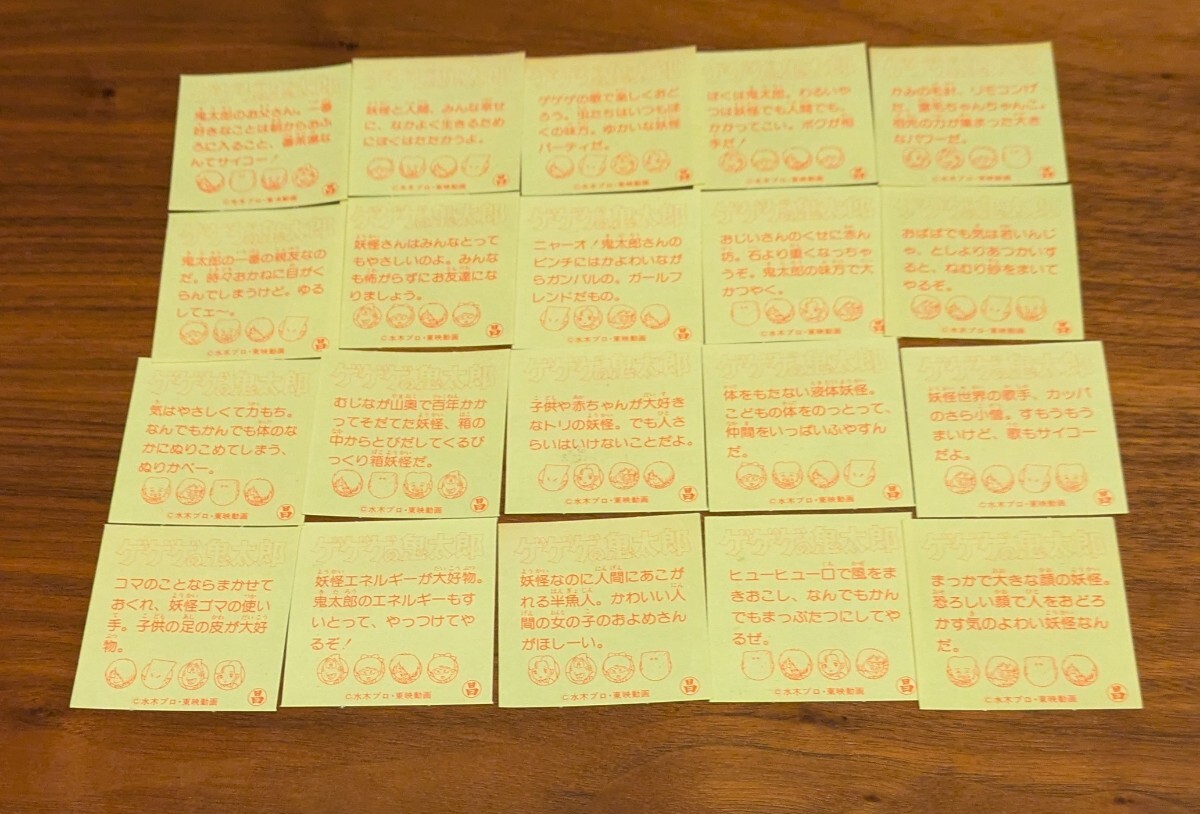 鬼太郎のお父さん。一番
好きなことは朝からおふ
ろに入ること、
んてサイコー！
©水木プロ・東映動画
妖怪と人間、みんな幸せ
に、なかよく生きるため
にぼくはたたかうよ。
©水木プロ・東映動画
ゲゲゲの歌で楽しくおど
ろう。虫たちはいつもぼ
くの味方。ゆかいな妖怪
パーティだ。
©水木プロ・東映動画
ぼくは鬼太郎。わるいや
つは妖怪でも人間でも、
かかってこい。ボクが相
手だ！
©水木プロ・東映動画
かみの毛針、リモコンげ
た、霊毛ちゃんちゃんこ。
祖先の力が集まった大き
なパワーだ。
©水木プロ・東映動画
ゲゲゲの鬼太郎
鬼太郎の一番の親友なの
だ。時々おかねに目がく
らんでしまうけど。ゆる
してェ〜。
©水木プロ・東映動画
ゲゲゲの鬼太郎
妖怪さんはみんなとって
もやさしいのよ。みんな
も怖がらずにお友達にな
りましょう。
©水木プロ・東映動画
ゲゲゲの鬼太郎
ニャーオ！鬼太郎さんの
ピンチにはかよわいなが
らガンバルの。ガールフ
レンドだもの。
©水木プロ・東映動画
ゲゲゲの鬼太郎
おじいさんのくせに赤ん
坊。石より重くなっちゃ
うぞ。鬼太郎の味方で大
かつやく。
©水木プロ・東映動画
ゲゲゲの鬼太郎
おばばでも気は若いんじ
ゃ、としよりあつかいす
ると、ねむり砂をまいて
やるぞ。
©水木プロ・東映動画
ゲゲゲの鬼太郎
気はやさしくて力もち。
なんでもかんでも体のな
かにぬりこめてしまう、
ぬりかべー。
©水木プロ・東映動画
ゲゲゲの鬼太郎
むじなが山奥で百年かか
ってそだてた妖怪、箱の
中からとびだしてくるび
っくり箱妖怪だ。
©水木プロ・東映動画
ゲゲゲの鬼太郎
子供や赤ちゃんが大好き
なトリの妖怪。でも人さ
らいはいけないことだよ。
©水木プロ・東映動画
ゲゲゲの鬼太郎
体をもたない液体妖怪。
こどもの体をのっとって、
仲間をいっぱいふやすん
だ。
©水木プロ・東映動画
ゲゲゲの鬼太郎
妖怪世界の歌手、カッパ
のさら小僧。すもうもう
まいけど、歌もサイコー
だよ。
©水木プロ・東映動画
ゲゲゲの鬼太郎
コマのことならまかせて
おくれ、妖怪ゴマの使い
手。子供の足の皮が大好
物。
©水木プロ・東映動画
ゲゲゲの鬼太郎
妖怪エネルギーが大好物。
鬼太郎のエネルギーもす
いとって、やっつけてや
るぞ！
©水木プロ・東映動画
ゲゲゲの鬼太郎
妖怪なのに人間にあこが
れる半魚人。かわいい人
間の女の子のおよめさん
がほしーい。
©水木プロ・東映動画
ゲゲゲの鬼太郎
ヒューヒュー口で風をま
きおこし、なんでもかん
でもまっぷたつにしてや
るぜ。
©水木プロ・東映動画
ゲゲゲの鬼太郎
まっかで大きな顔の妖怪。
恐ろしい顔で人をおどろ
かす気のよわい妖怪なん
だ。
©水木プロ・東映動画